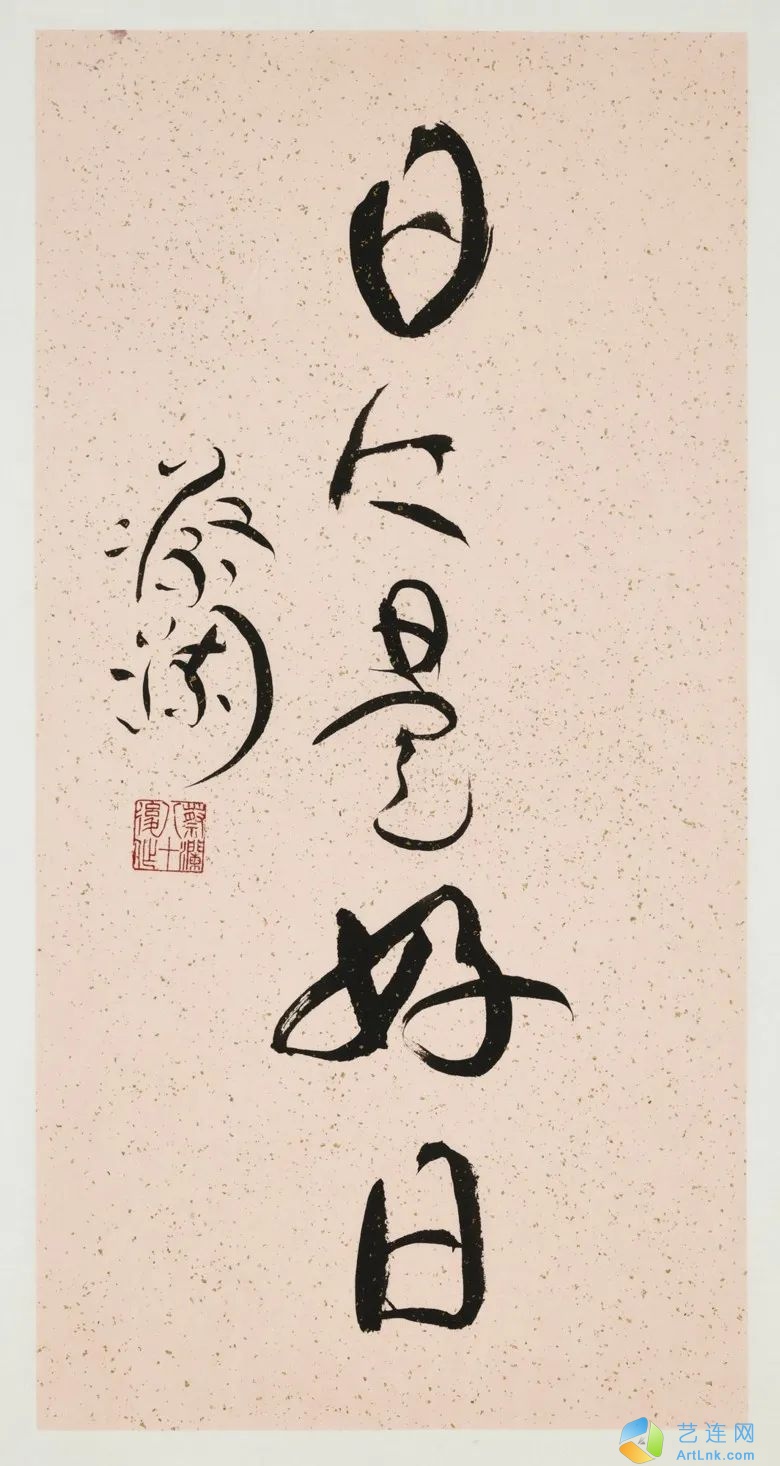 日々是好日
蔡瀾
蔡瀾
八十
後作
艺连网
ArtLnk.com